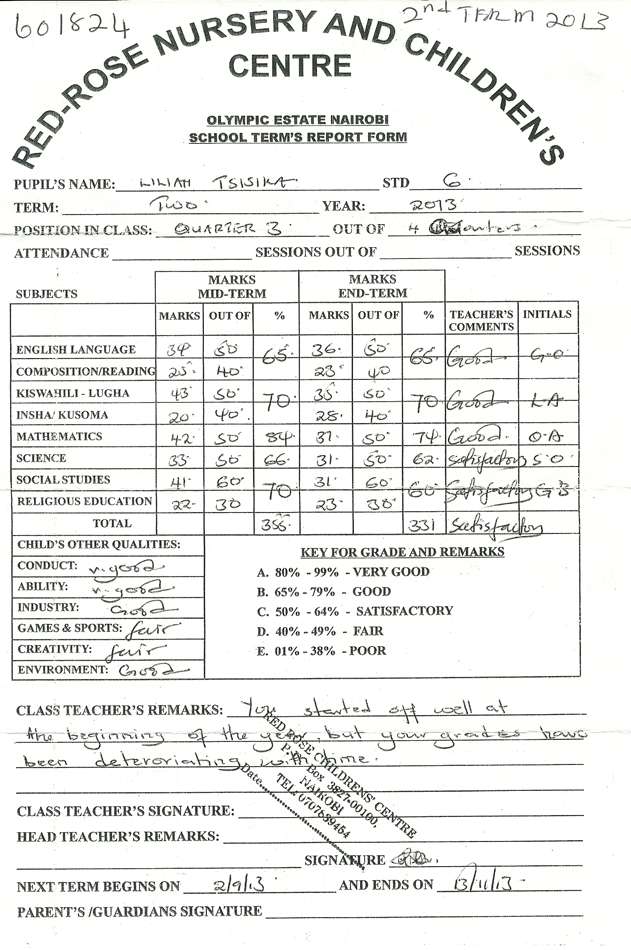 601824
2nd TERM 2013
RED-ROSE NURSERY AND CHILDREN'S
CENTRE
OLYMPIC ESTATE NAIROBI
SCHOOL TERM'S REPORT FORM
PUPIL'S NAME: LILIAN TSISIKA STD 6
TERM: TWO YEAR: 2013
POSITION IN CLASS: QUARTER 3 OUT OF 4 Quarters
ATTENDANCE SESSIONS OUT OF SESSIONS
SUBJECTS MARKS MID-TERM MARKS END-TERM
MARKS OUT OF % MARKS OUT OF % TEACHER'S COMMENTS INITIALS
ENGLISH LANGUAGE 34 50 65 36 50 65 Good G-O
COMPOSITION/READING 25 40 23 40
KISWAHILI - LUGHA 43 50 70 35 50 70 Good L-A
INSHA/ KUSOMA 20 40 28 40
MATHEMATICS 42 50 84 37 50 74 Good O-A
SCIENCE 33 50 66 31 50 62 Satisfactory S O
SOCIAL STUDIES 41 60 70 31 60 60 Satisfactory G B
RELIGIOUS EDUCATION 22 30 23 30
TOTAL 355 331 Satisfactory
CHILD'S OTHER QUALITIES:
CONDUCT: v. good
ABILITY: v. good
INDUSTRY: Good
GAMES & SPORTS: fair
CREATIVITY: fair
ENVIRONMENT: Good
KEY FOR GRADE AND REMARKS
A. 80% - 99% - VERY GOOD
B. 65% - 79% - GOOD
C. 50% - 64% - SATISFACTORY
D. 40% - 49% - FAIR
E. 01% - 38% - POOR
CLASS TEACHER'S REMARKS: You started off well at
the beginning of the year, but your grades have
been deteroriating with time.
RED ROSE CHILDRENS' CENTRE
P. O. Box 3827-00100,
NAIROBI
TEL: 0707639454
Date
CLASS TEACHER'S SIGNATURE:
HEAD TEACHER'S REMARKS:
SIGNATURE
NEXT TERM BEGINS ON 2/9/13 AND ENDS ON 13/11/13
PARENT'S /GUARDIANS SIGNATURE